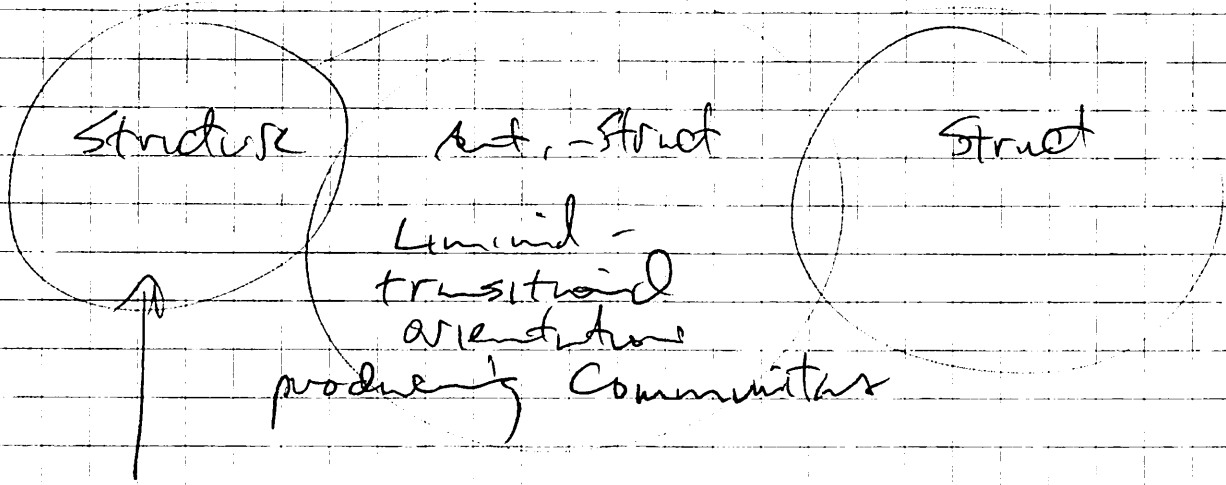 Structure Anti-Struct Struct
Liminal -
transitional
orientation
producing Communitas